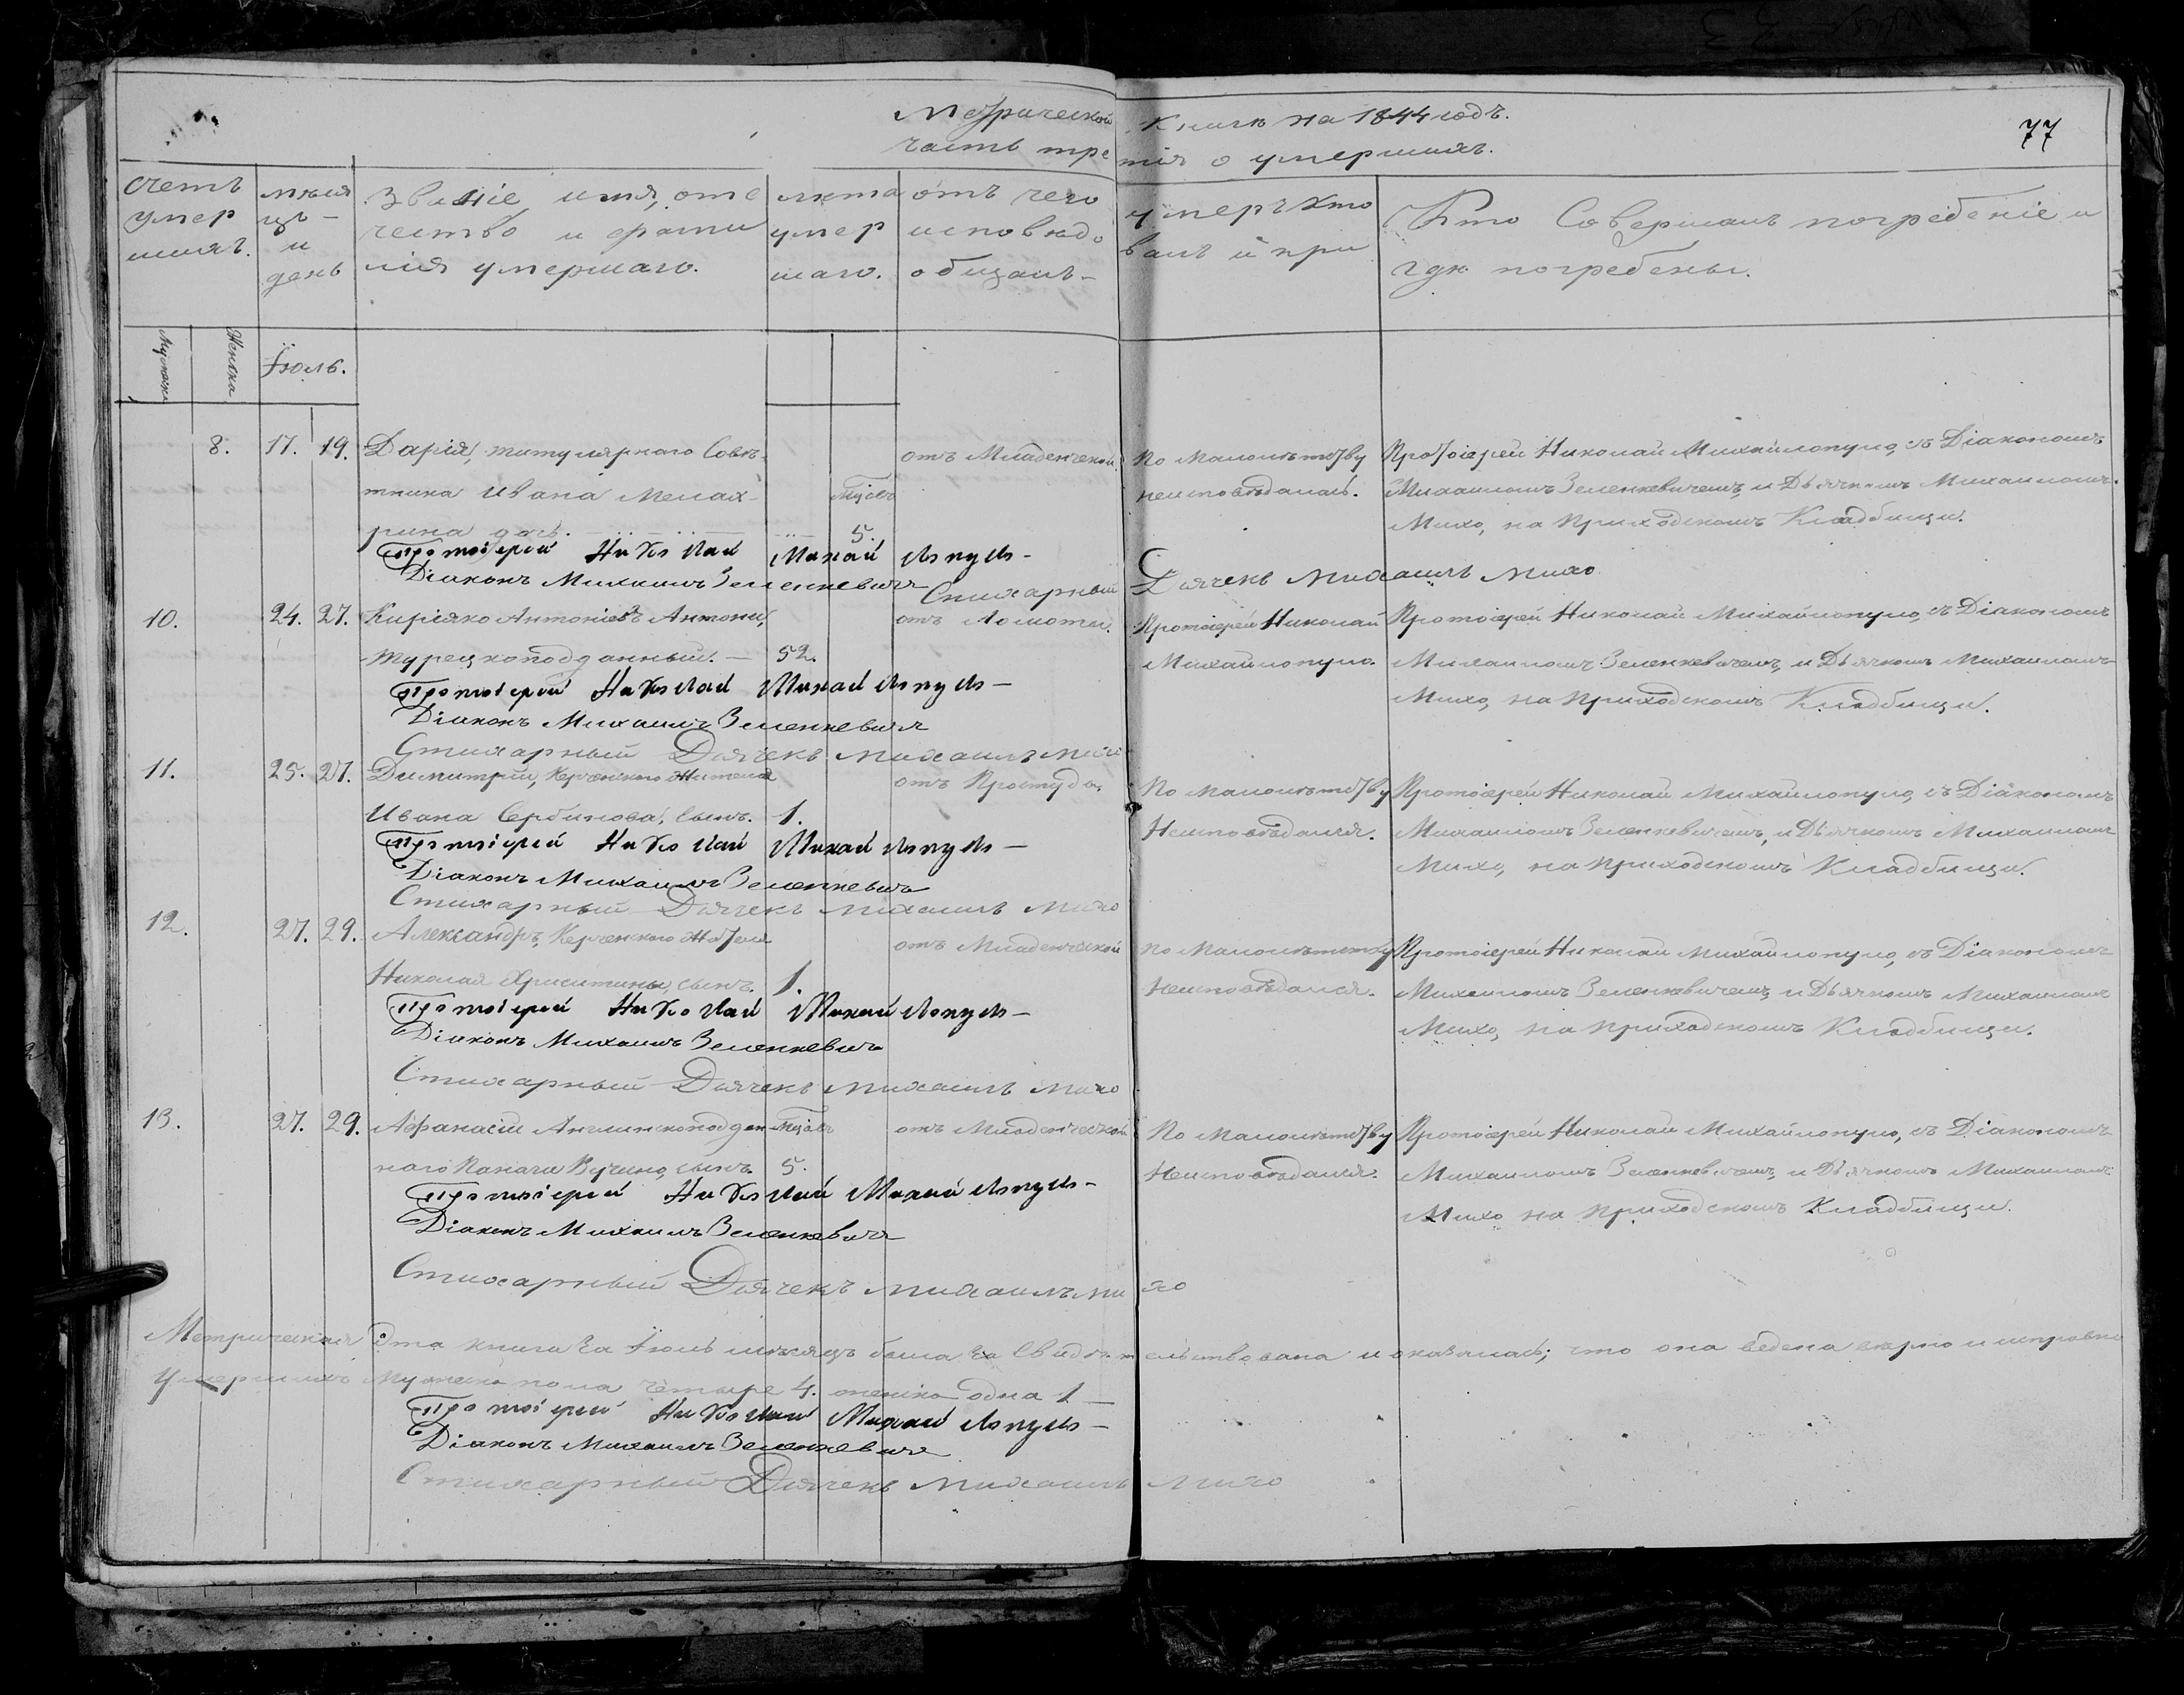 Метрической книги на 1844 годъ.
часть третія о умершихъ.
77
Счетъ умер шихъ.
мѣся цъ и день
Званіе имя, оте чество и фами лія умершаго.
лѣта умер шаго.
отъ чего умеръ Кто исповѣдо валъ и при общалъ-
Кто Совершалъ погребеніе и гдѣ погребены.
Мужеска
Женска
Іюль.
8. 17. 19. Дарія, титулярнаго Совѣ- отъ Младенческой По малолѣтству Протоіерей Николай Михайлопуло, съ Діакономъ
тника Ивана Мелах- Мцовъ неисповѣдалась. Михаиломъ Зеленкевичемъ, и Дьячкомъ Михаиломъ
рина дочь. 5. Михо, на приходскомъ Кладбищи.
Протоіерей Николай Михайлопуло-
Діаконъ Михаилъ Зеленкевичъ
Стихарный Дьячекъ Михаилъ Михо
10. 24. 27. Киріяко Антоніевъ Антони, отъ Ломоты. Протоіерей Николай Протоіерей Николай Михайлопуло, съ Діакономъ
турецкоподданный. — 52. Михайлопуло. Михаиломъ Зеленкевичемъ, и Дьячкомъ Михаиломъ
Михо, на приходскомъ Кладбищи.
Протоіерей Николай Михайлопуло —
Діаконъ Михаилъ Зеленкевичъ
Стихарный Дьячекъ Михаилъ Михо
11. 25. 27. Димитрій, Керченскаго Жителя отъ Простуды. По малолѣтству Протоіерей Николай Михайлопуло, съ Діакономъ
Ивана Сербинова, сынъ. 1. Неисповѣдался. Михаиломъ Зеленкевичемъ, и Дьячкомъ Михаиломъ
Михо, на приходскомъ Кладбищи.
Протоіерей Николай Михайлопуло —
Діаконъ Михаилъ Зеленкевичъ
Стихарный Дьячекъ Михаилъ Михо
12. 27. 29. Александръ, Керченскаго Жителя отъ Младенческой по малолѣтству Протоіерей Николай Михайлопуло, съ Діакономъ
Николая Христины, сынъ. 1. Неисповѣдался. Михаиломъ Зеленкевичемъ, и Дьячкомъ Михаиломъ
Михо, на приходскомъ Кладбищи.
Протоіерей Николай Михайлопуло —
Діаконъ Михаилъ Зеленкевичъ
Стихарный Дьячекъ Михаилъ Михо
13. 27. 29. Афанасій Англинскоподдан Мцовъ отъ Младенческой По малолѣтству Протоіерей Николай Михайлопуло, съ Діакономъ
наго Панаги Вучино, сынъ. 5. Неисповѣдался. Михаиломъ Зеленкевичемъ, и Дьячкомъ Михаиломъ
Михо на приходскомъ Кладбищи.
Протоіерей Николай Михайлопуло-
Діаконъ Михаилъ Зеленкевичъ
Стихарный Дьячекъ Михаилъ Михо
Метрическая эта книга за Іюль мѣсяцъ была за свидѣтельствована и оказалась; что она ведена вѣрно и исправно
Умершихъ Мужеска пола четыре 4. женска одна 1 —
Протоіерей Николай Михайлопуло —
Діаконъ Михаилъ Зеленкевичъ
Стихарный Дьячекъ Михаилъ Михо